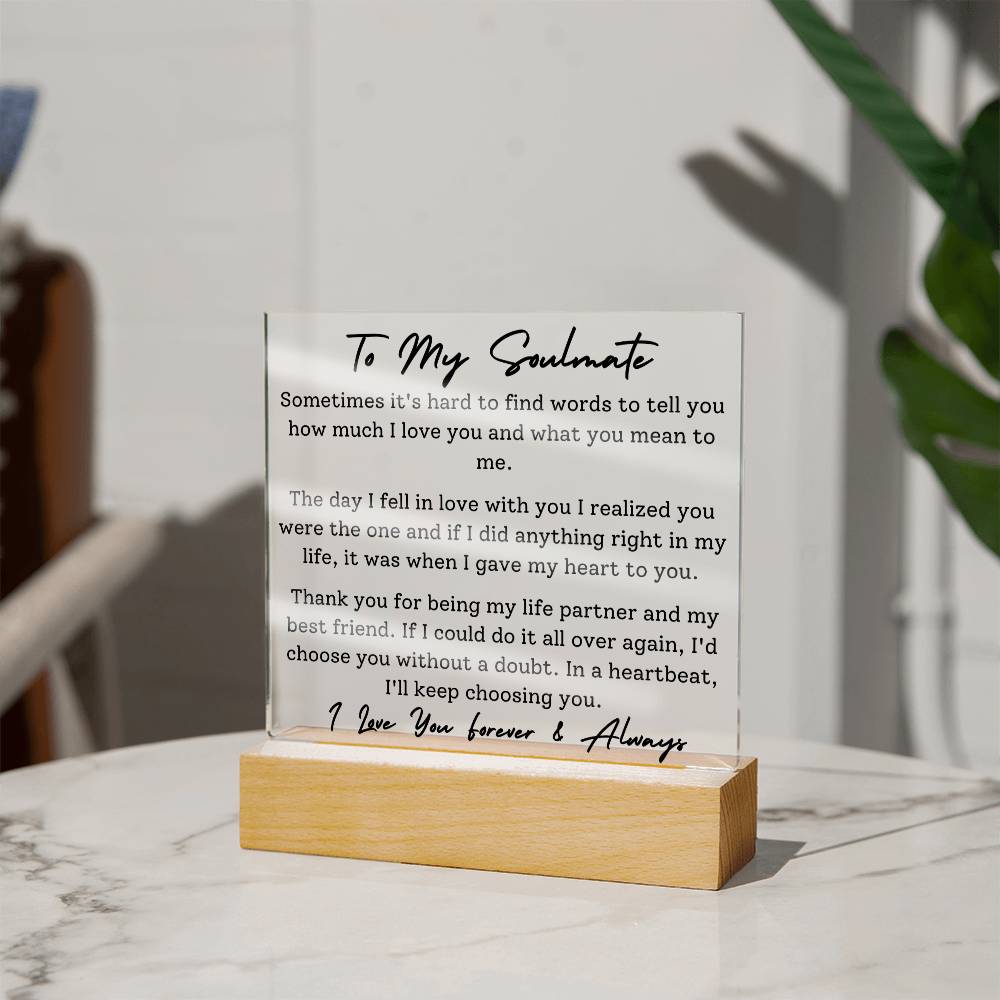 To My Soulmate
Sometimes it's hard to find words to tell you
how much I love you and what you mean to
me.
The day I fell in love with you I realized you
were the one and if I did anything right in my
life, it was when I gave my heart to you.
Thank you for being my life partner and my
best friend. If I could do it all over again, I'd
choose you without a doubt. In a heartbeat,
I'll keep choosing you.
I Love You forever & Always